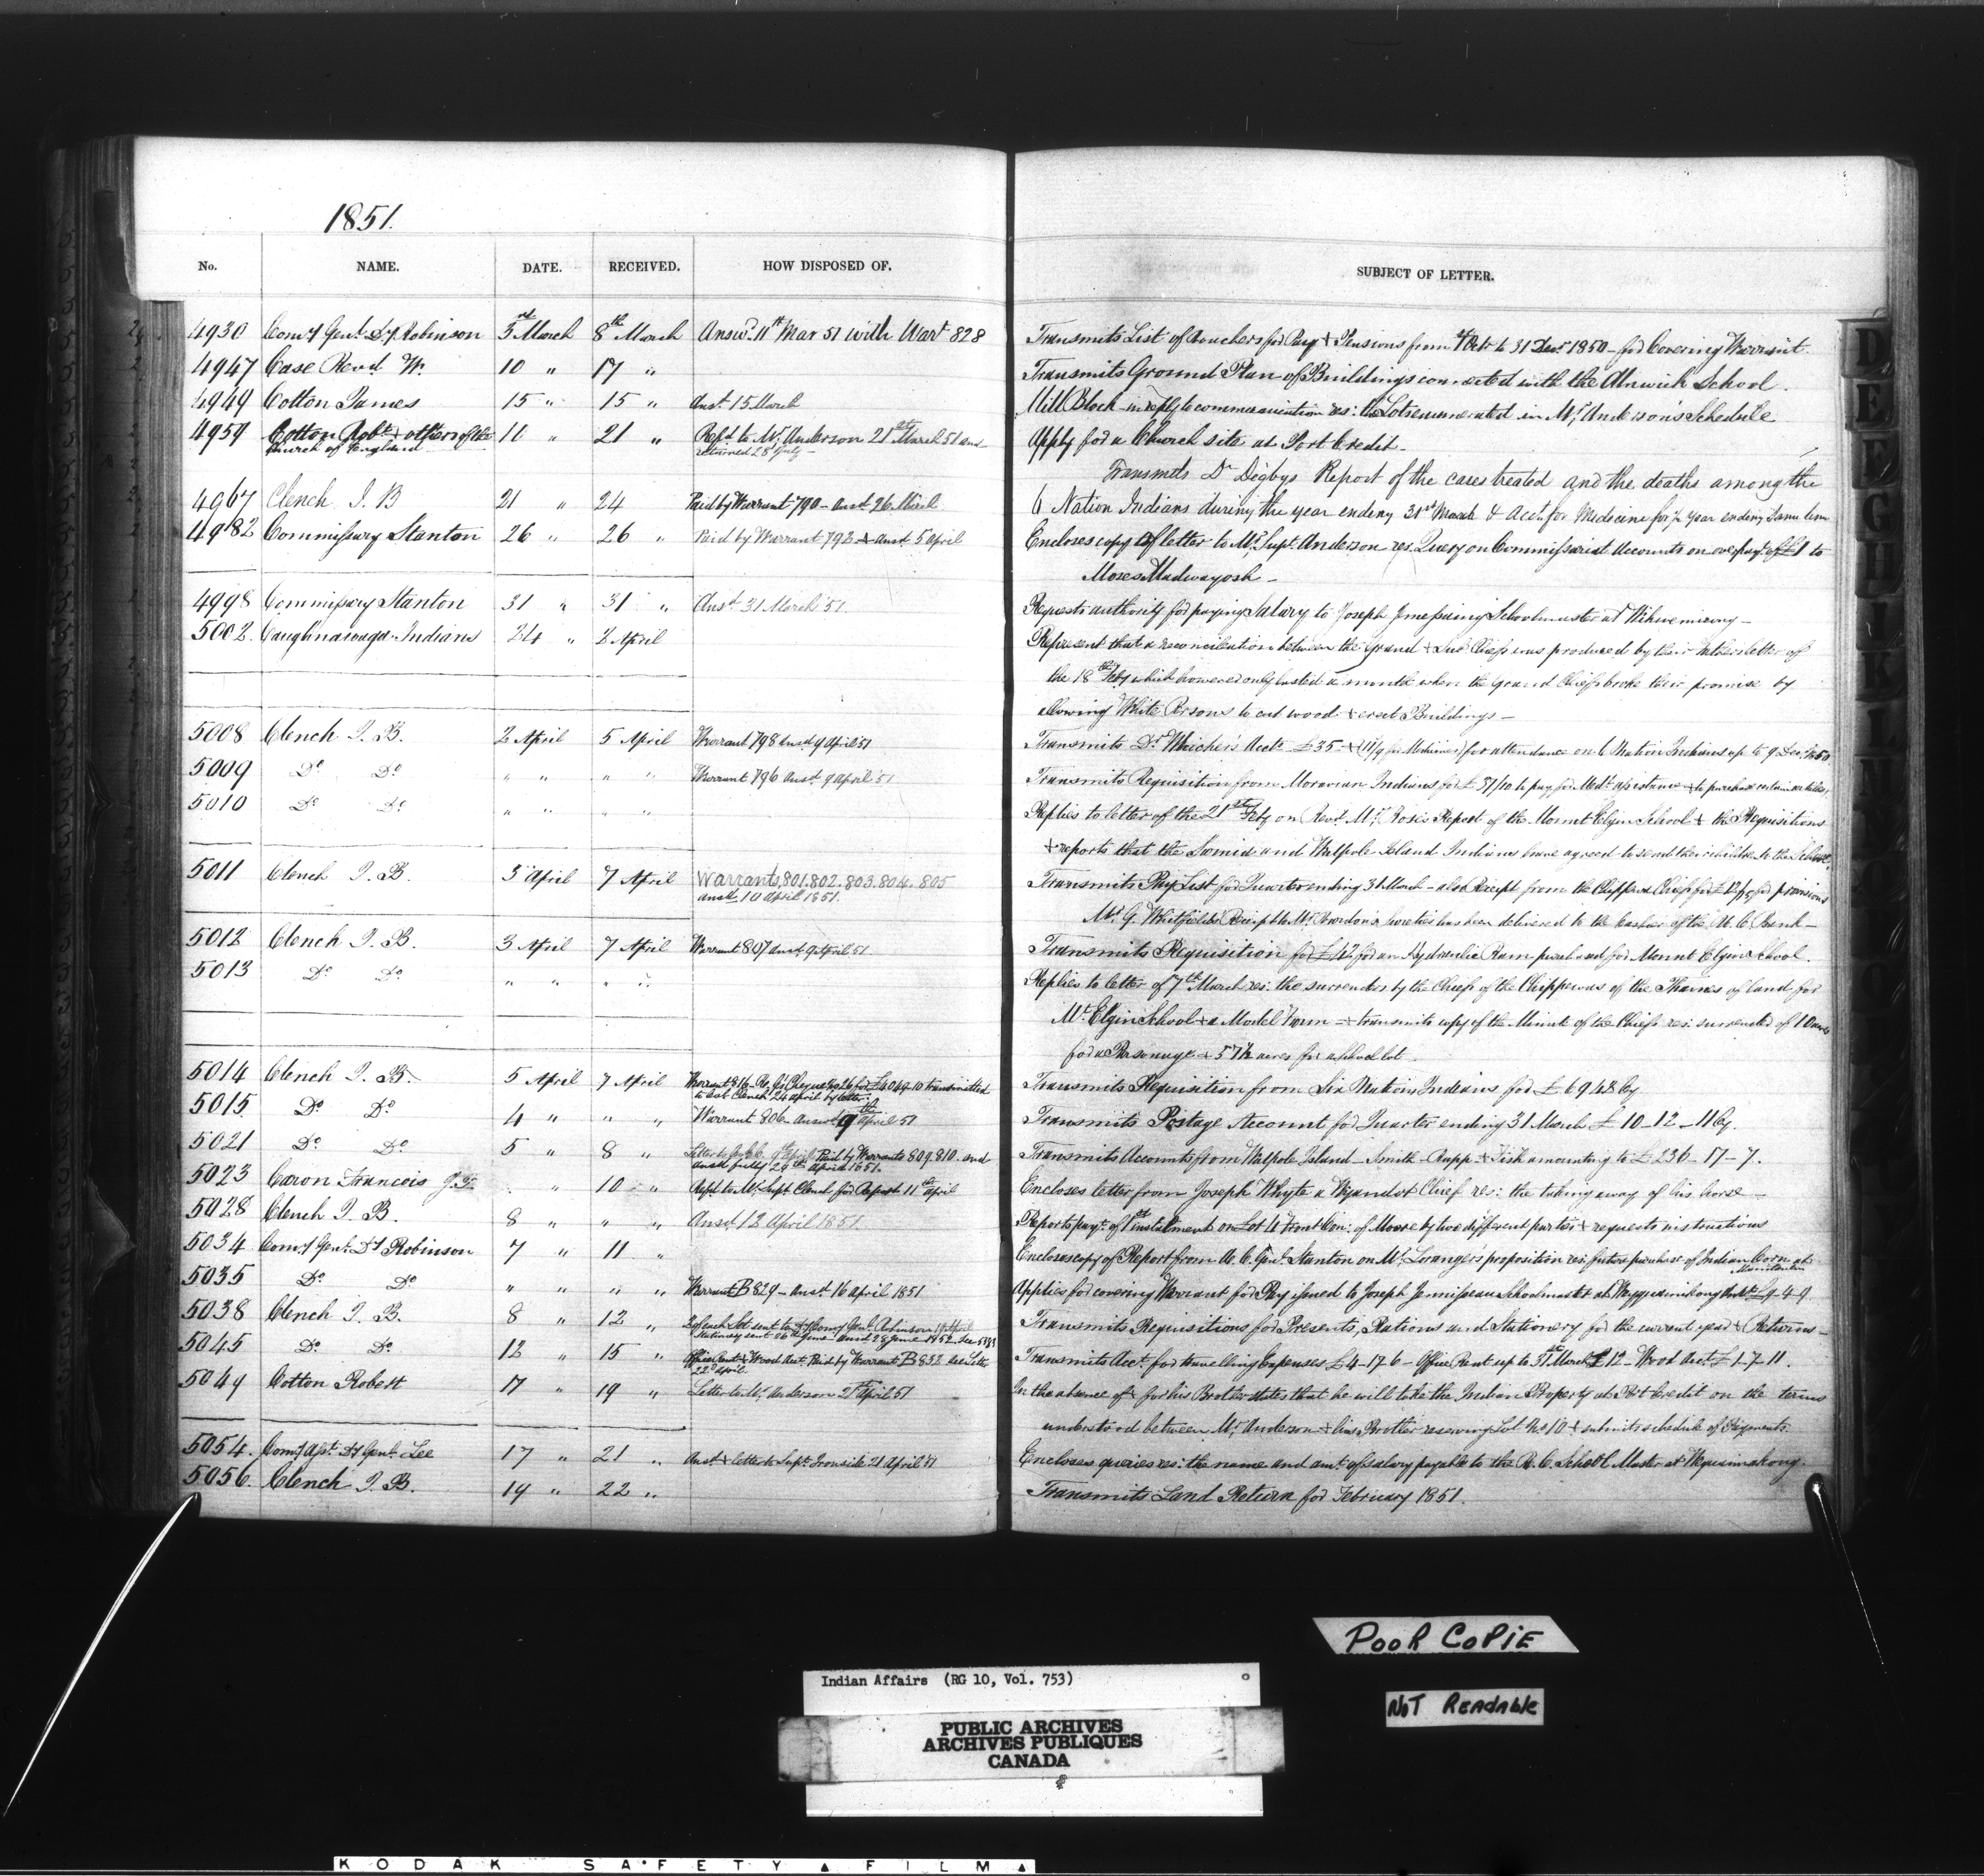 1851.
No. NAME. DATE. RECEIVED. HOW DISPOSED OF. SUBJECT OF LETTER.
4930 Comy Genl. Dy Robinson 3rd March 8th March Answd. 11th Mar 51 with Wart 828 Transmits List of Vouchers for Pay & Pensions from 1 Octr to 31 Decr 1850 - for Covering Warrant.
4947 Case Revd W. 10 " 17 " Transmits Ground Plan of Buildings connected with the Alnwick School.
4949 Cotton James 15 " 15 " Ansd. 15 March Mill Block - in reply to communication res: the Lots enumerated in Mr. Anderson's Schedule
4959 Cotton Robt & others of the Church of England 11 " 21 " Refd to Mr. Anderson 21st March 51 and returned 28 July - Apply for a Church site at Port Credit -
4967 Clench J. B 21 " 24 Paid by Warrant 790 - ansd 26 March Transmits Dr Digbys Report of the cases treated and the deaths among the
6 Nation Indians during the year ending 31st March & Acct. for Medicine for year ending same time
4982 Commissary Stanton 26 " 26 " Paid by Warrant 792 & ansd. 5 April Encloses copy of letter to Mr. Supt. Anderson res. Query on Commissariat Accounts on overpayt. of £1 to
Moses Madwayosh -
4998 Commissary Stanton 31 " 31 " Ansd. 31 March '51. Requests authority for paying Salary to Joseph Schoolmaster at
5002. Caughnawaga Indians 24 " 2 April Represent that a reconciliation between the Grand & Sub Chiefs was produced by their Father's letter of
the 18th Feby which however only lasted a month when the Grand Chiefs broke their promise by
allowing White Persons to cut wood & erect Buildings -
5008 Clench J. B. 2 April 5 April Warrant 798 ansd 9 April 51 Transmits Dr. Acct. £35 - for attendance on 6 Nation Indians up to 9 Dec. 1850
5009 Do Do " " " " Warrant 796 ansd. 9 April 51 Transmits Requisition from Moravian Indians for £37/10 to pay for Medl. assistance & to purchase certain articles.
5010 Do Do " " " " Replies to letter of the 21st Feby on Revd. Mr. Rose's Report of the Mount Elgin School & the Requisitions
& reports that the and Walpole Island Indians have agreed to send their children to the School
5011 Clench J. B. 3 April 7 April Warrants, 801. 802. 803. 804. 805 ansd. 10 April 1851. Transmits Pay List for Quarter ending 31 March - also Receipt from the Chippewa Chiefs for for provisions
Mr. G. Whitfields Receipt to Mr. has been delivered to the Cashier of the U. C. Bank -
5012 Clench J. B. 3 April 7 April Warrant 807 ansd. 9 April 51 Transmits Requisition for £42 for an Hydraulic Ram purchased for Mount Elgin School.
5013 Do Do " " " " Replies to letter of 7th March res: the surrender by the Chiefs of the Chippewas of the Thames of land for
Mt. Elgin School & a Model Farm - & transmits copy of the Minute of the Chiefs res: surrender of 10 acres
for a Parsonage & 57½ acres for a school lot.
5014 Clench J. B. 5 April 7 April Warrant 816 - transmitted to Col Clench 24 April by letter. Transmits Requisition from Six Nation Indians for £
5015 Do Do 4 " " " Warrant 806 - answd. 9th April 51 Transmits Postage Account for Quarter ending 31 March £10-12-11 Cy.
5021 Do Do 5 " 8 " Paid by Warrants 809.810. and ansd fully 29th April 1851. Transmits Accounts from Walpole Island - Smith - Rapp & Fish amounting to £236-17-7.
5023 Caron Francois " 10 " Refd to Mr. Supt Clench for Report 11th April Encloses letter from Joseph Whyte a Wyandot Chief res: the taking away of his horse -
5028 Clench J. B. 8 " " " Ansd. 12 April 1851. Reports payt. of 1st instalment on Lot 4 Front Con: of Moore by two different parties & requests instructions
5034 Comy Genl. Dy Robinson 7 " 11 " Encloses copy of Report from A. C. Genl. Stanton on Mr. Loranger's proposition res: future purchase of Indian Corn at Manitoulin
5035 Do Do " " " " Warrant B 829 - ansd. 16 April 1851 Applies for covering Warrant for Pay issued to Joseph Jennisseau Schoolmaster at £9-4-9.
5038 Clench J. B. 8 " 12 " sent to Dy Comy Genl. Robinson Stationery sent 26th June - ansd 28 June 1852 Transmits Requisitions for Presents, Rations and Stationery for the current year & Returns -
5045 Do Do 12 " 15 " Office Rent & Wood Act. Paid by Warrant B 832 see Letter 22d April Transmits Acct. for travelling Expenses £4-17-6 - Office Rent up to 31st March £12 - Wood Act. £1-7-11.
5049 Cotton Robert 17 " 19 " Letter to Mr. Anderson 21st April 51 In the absence of & for his Brother states that he will take the Indian Property at Port Credit on the terms
understood between Mr. Anderson & his Brother reserving Lot No 10 & submits schedule of Payments.
5054. Comy Asst. Dy Genl. Lee 17 " 21 " Ansd. & letter to Supt. Ironside 21 April 51 Encloses queries res: the name and amt. of salary payable to the R. C. School Master at
5056. Clench J. B. 19 " 22 " Transmits Land Return for February 1851.
D
E
F
G
H
I
K
L
POOR COPIE
NOT READABLE
Indian Affairs (RG 10, Vol. 753)
PUBLIC ARCHIVES
ARCHIVES PUBLIQUES
CANADA
KODAK SAFETY FILM